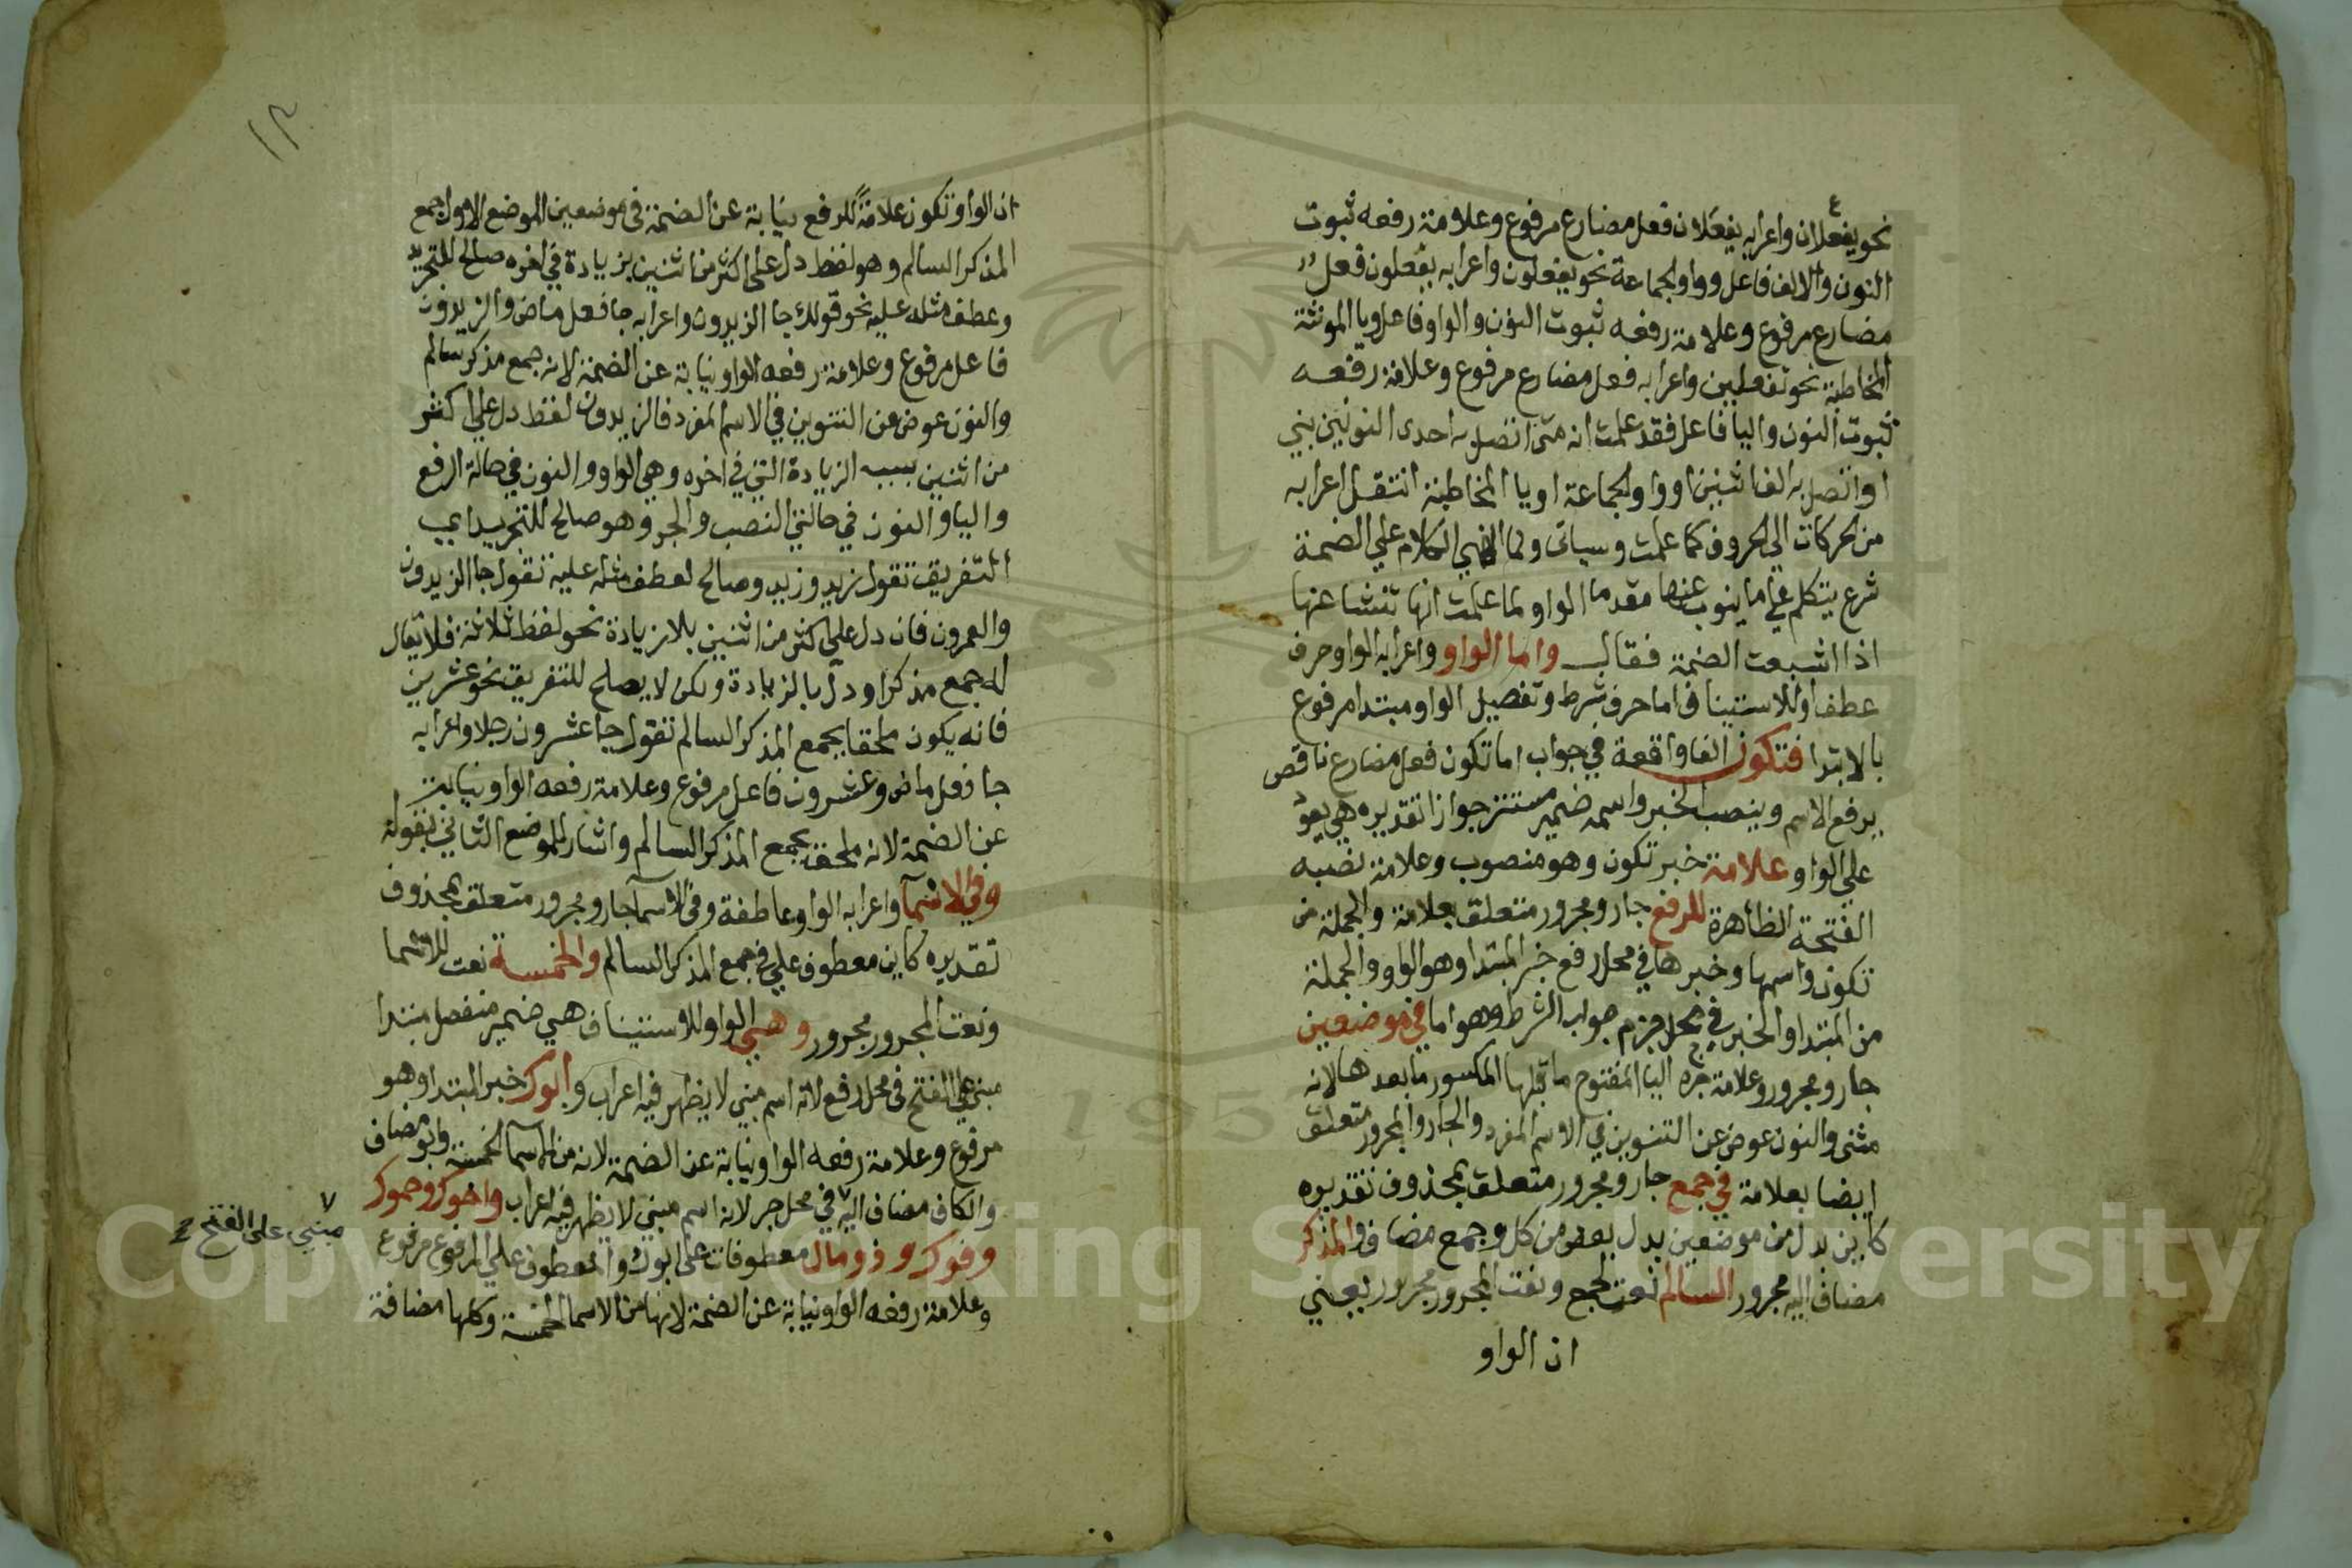 نحو يفعلان واعرابه يفعلان فعل مضارع مرفوع وعلامة رفعه ثبوت
النون والالف فاعل وواو الجماعة نحو يفعلون واعرابه يفعلون فعل
مضارع مرفوع وعلامة رفعه ثبوت النون والواو فاعل ويا المونثة
المخاطبة نحو تفعلين واعرابه فعل مضارع مرفوع وعلامة رفعه
ثبوت النون واليا فاعل فقد علمت انه متى اتصل به احدى النونين بني
او اتصل به الف اثنين او واو الجماعة او يا المخاطبة انتقل اعرابه
من الحركات الي الحروف كما علمت وسياتى ولما انهي الكلام علي الضمة
شرع يتكلم على ما ينوب عنها مقدما الواو لما علمت انها تنشا عنها
اذا اشبعت الضمة فقال واما الواو واعرابه الواو حرف
عطف او للاستيناف اما حرف شرط وتفصيل الواو مبتدا مرفوع
بالابتدا فتكون الفا واقعة في جواب اما تكون فعل مضارع ناقص
يرفع الاسم وينصب الخبر واسمه ضمير مستتر جوازا تقديره هي يعود
علي الواو علامة خبر تكون وهو منصوب وعلامة نصبه
الفتحة الظاهرة للرفع جار ومجرور متعلق بعلامة والجملة من
تكون واسمها وخبرها في محل رفع خبر المبتدا وهو الواو والجملة
من المبتدا والخبر في محل جزم جواب الشرط وهو اما في موضعين
جار ومجرور وعلامة جره اليا المفتوح ما قبلها المكسور ما بعدها لانه
مثنى والنون عوض عن التنوين في الاسم المفرد والجار والمجرور متعلق
ايضا بعلامة في جمع جار ومجرور متعلق بمحذوف تقديره
كاين بدل من موضعين بدل بعض من كل وجمع مضاف والمذكر
مضاف اليه مجرور السالم نعت لجمع ونعت المجرور مجرور يعني
ان الواو
١٢
ان الواو تكون علامة للرفع نيابة عن الضمة فى موضعين الموضع الاول جمع
المذكر السالم وهو لفظ دل على اكثر من اثنين بزيادة في اخره صالح للتجريد
وعطف مثله عليه نحو قولك جا الزيدون واعرابه جا فعل ماض والزيدون
فاعل مرفوع وعلامة رفعه الواو نيابة عن الضمة لانه جمع مذكر سالم
والنون عوض عن التنوين في الاسم المفرد فالزيدون لفظ دل علي اكثر
من اثنين بسبب الزيادة التي في اخره وهي الواو والنون في حالة الرفع
واليا والنون في حالتي النصب والجر وهو صالح للتجريد اي
التفريق تقول زيد وزيد وصالح لعطف مثله عليه تقول جا الزيدون
والعمرون فان دل علي اكثر من اثنين بلا زيادة نحو لفظ ثلاثة فلا يقال
له جمع مذكر او دل بالزيادة ولكن لا يصلح للتفريق نحو عشرين
فانه يكون ملحقا بجمع المذكر السالم تقول جا عشرون رجلا واعرابه
جا فعل ماض وعشرون فاعل مرفوع وعلامة رفعه الواو نيابة
عن الضمة لانه ملحق بجمع المذكر السالم واشار للموضع الثاني بقوله
وفي الاسما واعرابه الواو عاطفة وفى الاسما جار ومجرور متعلق بمحذوف
تقديره كاين معطوف علي في جمع المذكر السالم والخمسة نعت للاسما
ونعت المجرور مجرور وهي الواو للاستيناف هي ضمير منفصل مبتدا
مبني على الفتح فى محل رفع لانه اسم مبني لا يظهر فيه اعراب وابوك خبر المبتدا وهو
مرفوع وعلامة رفعه الواو نيابة عن الضمة لانه من الاسما الخمسة وابو مضاف
والكاف مضاف اليه في محل جر لانه اسم مبني لا يظهر فيه اعراب واخوك وحموك
وفوك وذو مال معطوفات على ابوك والمعطوف علي المرفوع مرفوع
وعلامة رفعه الواو نيابة عن الضمة لانها من الاسما الخمسة وكلها مضافة
مبني على الفتح
Copyright © King Saud University
195